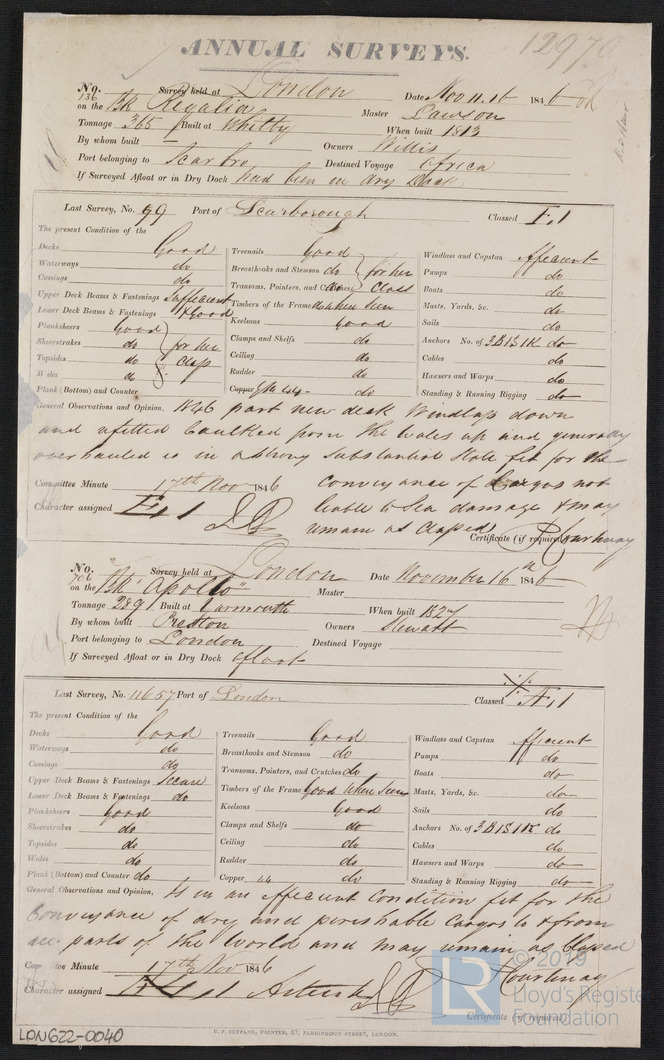 ANNUAL SURVEYS.
12976
No. 136 Survey held at London Date Nov 11.16 1846
on the Bk Regalia Master Lawson
Tonnage 365 Built at Whitby When built 1813
By whom built — Owners Willis
Port belonging to Scarbro Destined Voyage Africa
If Surveyed Afloat or in Dry Dock had been in dry Dock
Last Survey, No. 99 Port of Scarborough Classed E.1
The present Condition of the
Decks Good
Waterways do
Comings do
Upper Deck Beams & Fastenings Sufficient
Lower Deck Beams & Fastenings & Good
Planksheers Good
Sheerstrakes do for her
Topsides do Class
Wales do
Plank (Bottom) and Counter
Treenails Good
Breasthooks and Stemson do for her
Transoms, Pointers, and Crutches do Class
Timbers of the Frame when seen
Keelsons Good
Clamps and Shelfs do
Ceiling do
Rudder do
Copper 44 do
Windlass and Capstan Effecient
Pumps do
Boats do
Masts, Yards, &c. do
Sails do
Anchors No. of 3B1S1K do
Cables do
Hawsers and Warps do
Standing & Running Rigging do
General Observations and Opinion, 1846 part new deck Windlass down
and refitted Caulked from the Wales up and generally
overhauled is in a strong substantial State fit for the
Committee Minute 17th Nov 1846 conveyance of Cargos not
Character assigned E.1 liable to Sea damage & may
remain as Classed
Certificate (if required) Courtenay
No. 706 Survey held at London Date November 16th 1846
on the Bk "Apollo" Master
Tonnage 289 Built at Yarmouth When built 1827
By whom built Preston Owners Stewart
Port belonging to London Destined Voyage
If Surveyed Afloat or in Dry Dock afloat
Last Survey, No. 11657 Port of London Classed A.1
The present Condition of the
Decks Good
Waterways do
Comings do
Upper Deck Beams & Fastenings Secure
Lower Deck Beams & Fastenings do
Planksheers Good
Sheerstrakes do
Topsides do
Wales do
Plank (Bottom) and Counter do
Treenails Good
Breasthooks and Stemson do
Transoms, Pointers, and Crutches do
Timbers of the Frame Good when seen
Keelsons Good
Clamps and Shelfs do
Ceiling do
Rudder do
Copper 44 do
Windlass and Capstan Efficient
Pumps do
Boats do
Masts, Yards, &c. do
Sails do
Anchors No. of 3B1S1K do
Cables do
Hawsers and Warps do
Standing & Running Rigging do
General Observations and Opinion, Is in an Effecient Condition fit for the
Conveyance of dry and perishable Cargos to & from
all parts of the World and may remain as Classed
Committee Minute 17th Nov 1846 Courtenay
Character assigned
Certificate (if required)
C. F. SEYFANG, PRINTER, 57, FARRINGDON STREET, LONDON.
LON622-0040
LR
© 2019
Lloyd's Register
Foundation